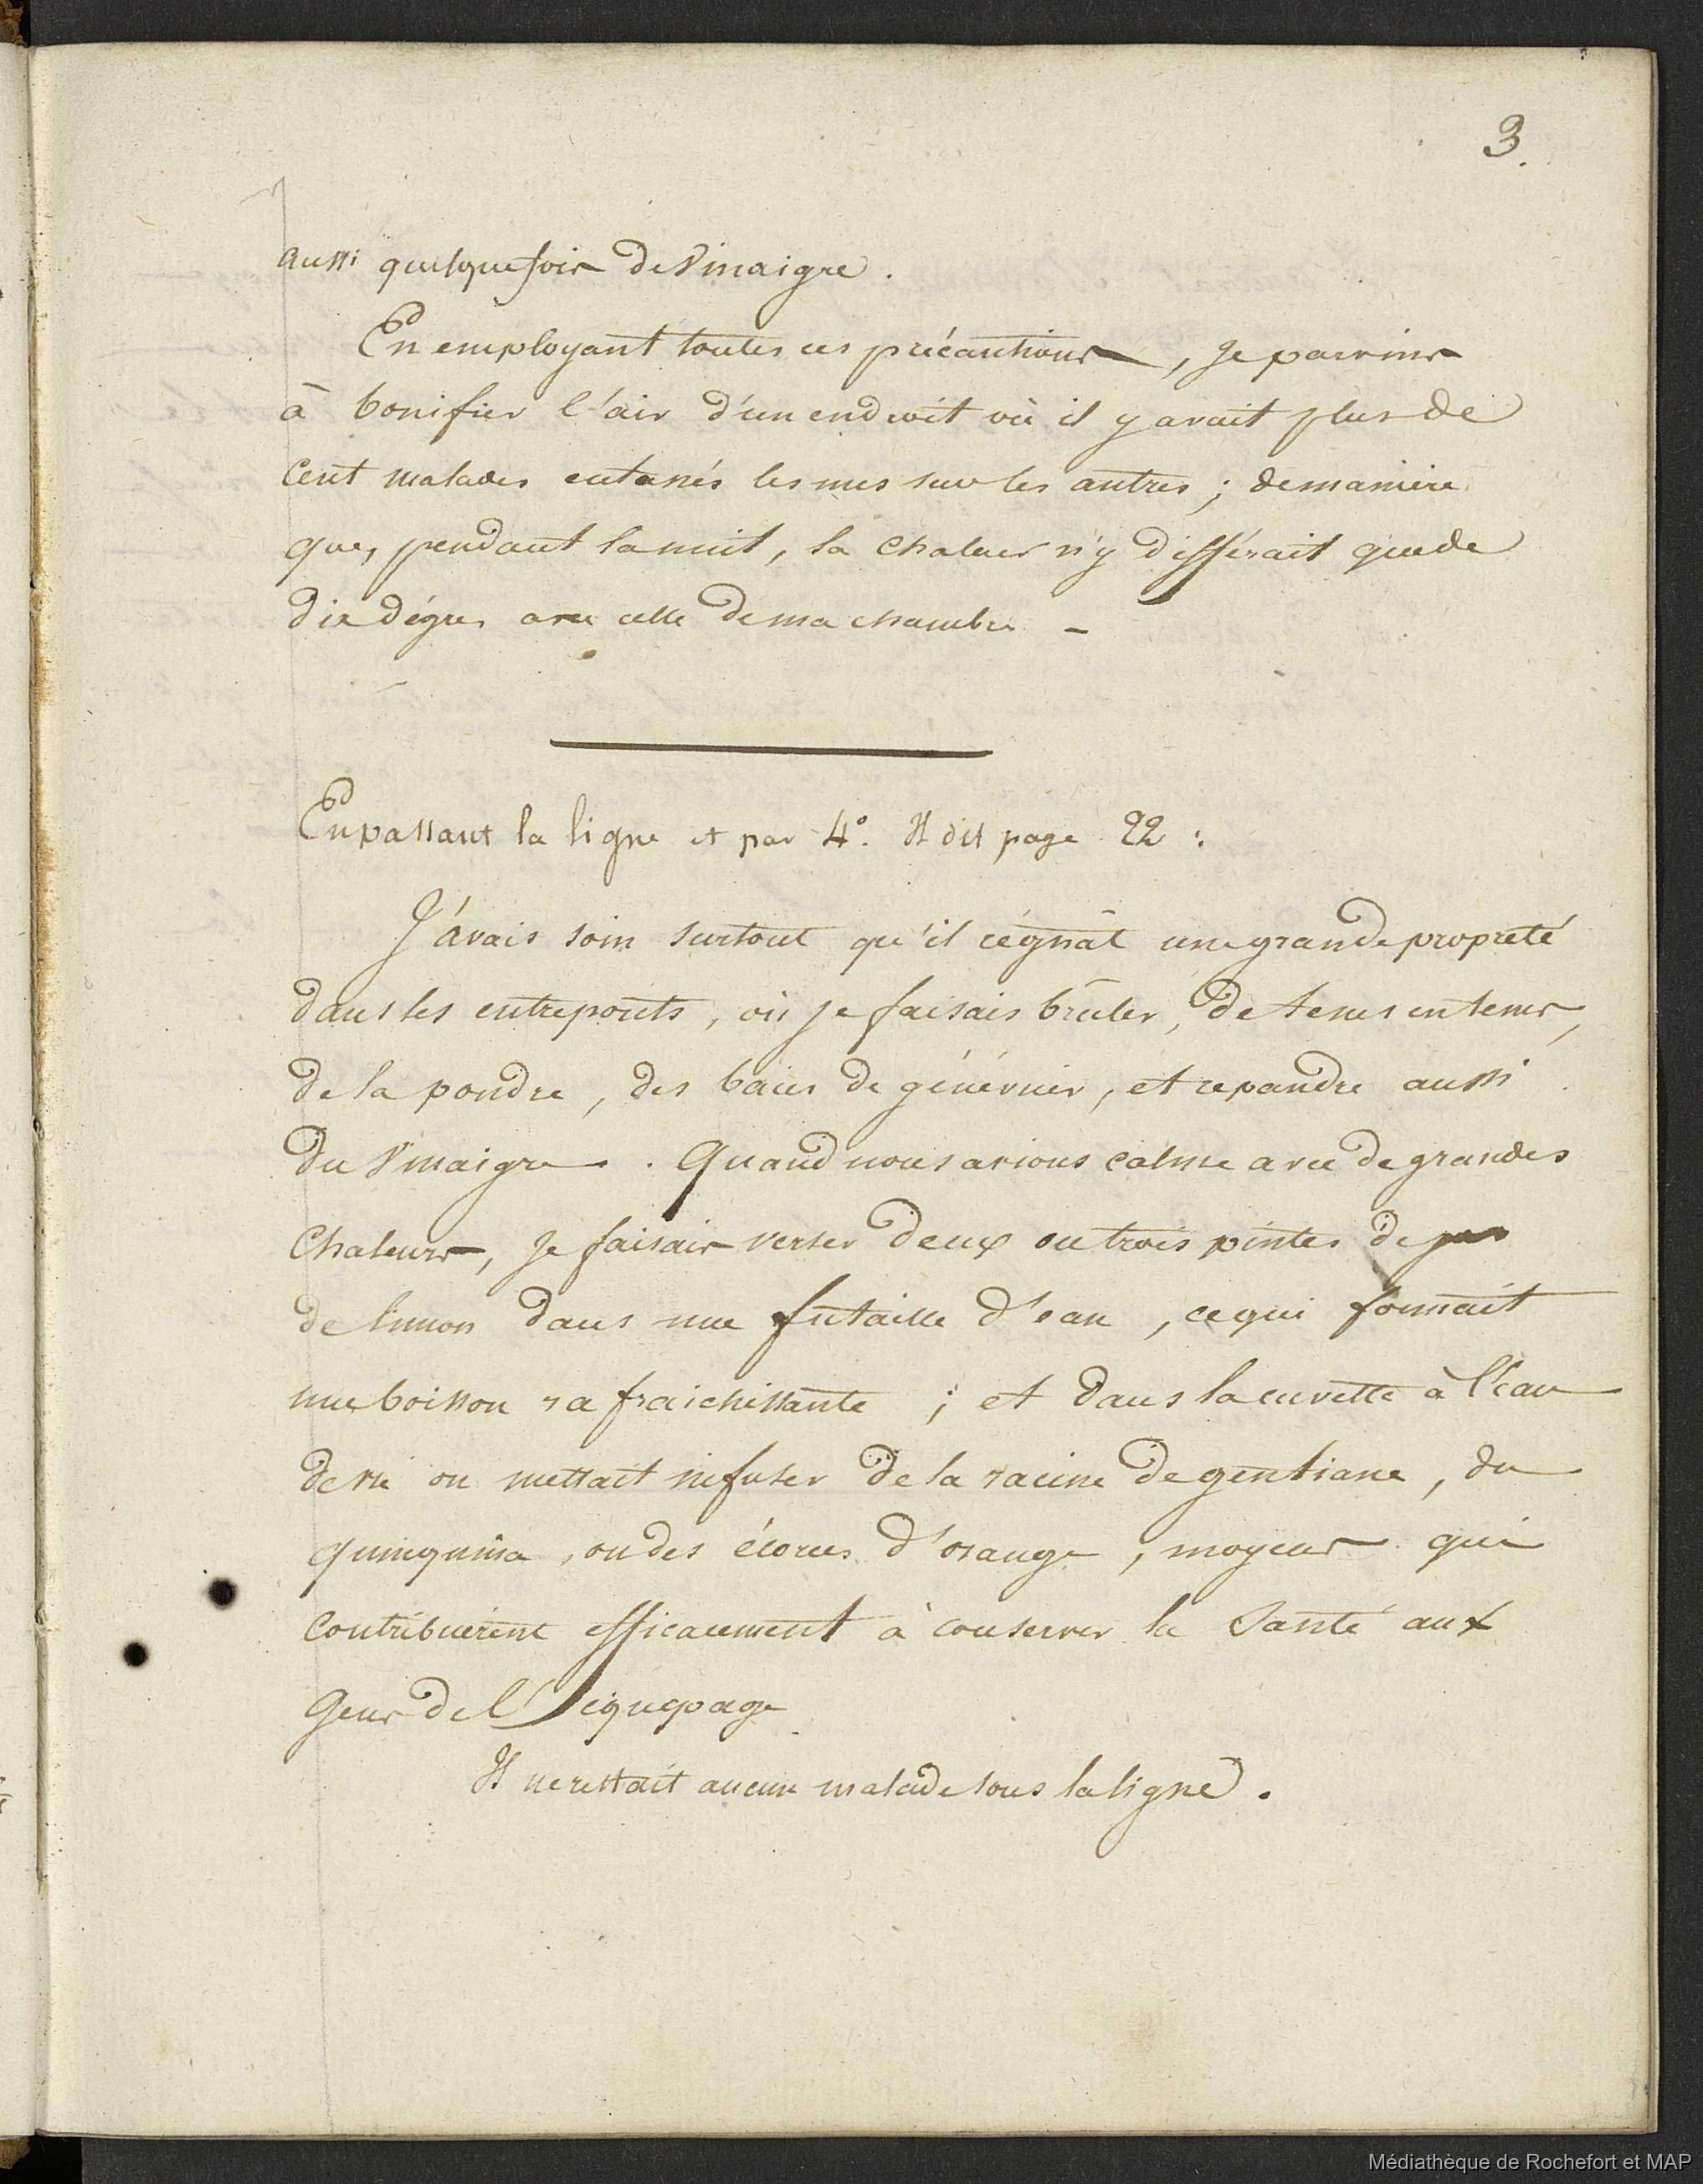 3.
aussi quelquefois de Vinaigre.
En employant toutes ces précautions, je parvins
à bonifier l'air d'un endroit où il y avait plus de
Cent malades entassés les uns sur les autres ; de manière
que, pendant la nuit, la chaleur n'y différait que de
dix dégrés avec celle de ma chambre -
En passant la ligne et par 4°. Il dit page 22 :
J'avais soin surtout qu'il régnât une grande propreté
dans les entreponts, où je faisais brûler, de tems en tems,
de la poudre, des baies de génévrier, et repandre aussi
du Vinaigre. Quand nous avions calme avec de grandes
Chaleurs, je faisais verser deux ou trois pintes de jus
de limon dans une futaille d'eau, ce qui formait
une boisson rafraichissante ; et dans la cuvette à l'eau
de vie on mettait infuser de la racine de gentiane, du
quinquina, ou des écorces d'orange, moyens qui
contribuèrent efficacement à conserver la Santé aux
Gens de l'équipage
Il ne restait aucun malade sous la ligne.
Médiathèque de Rochefort et MAP